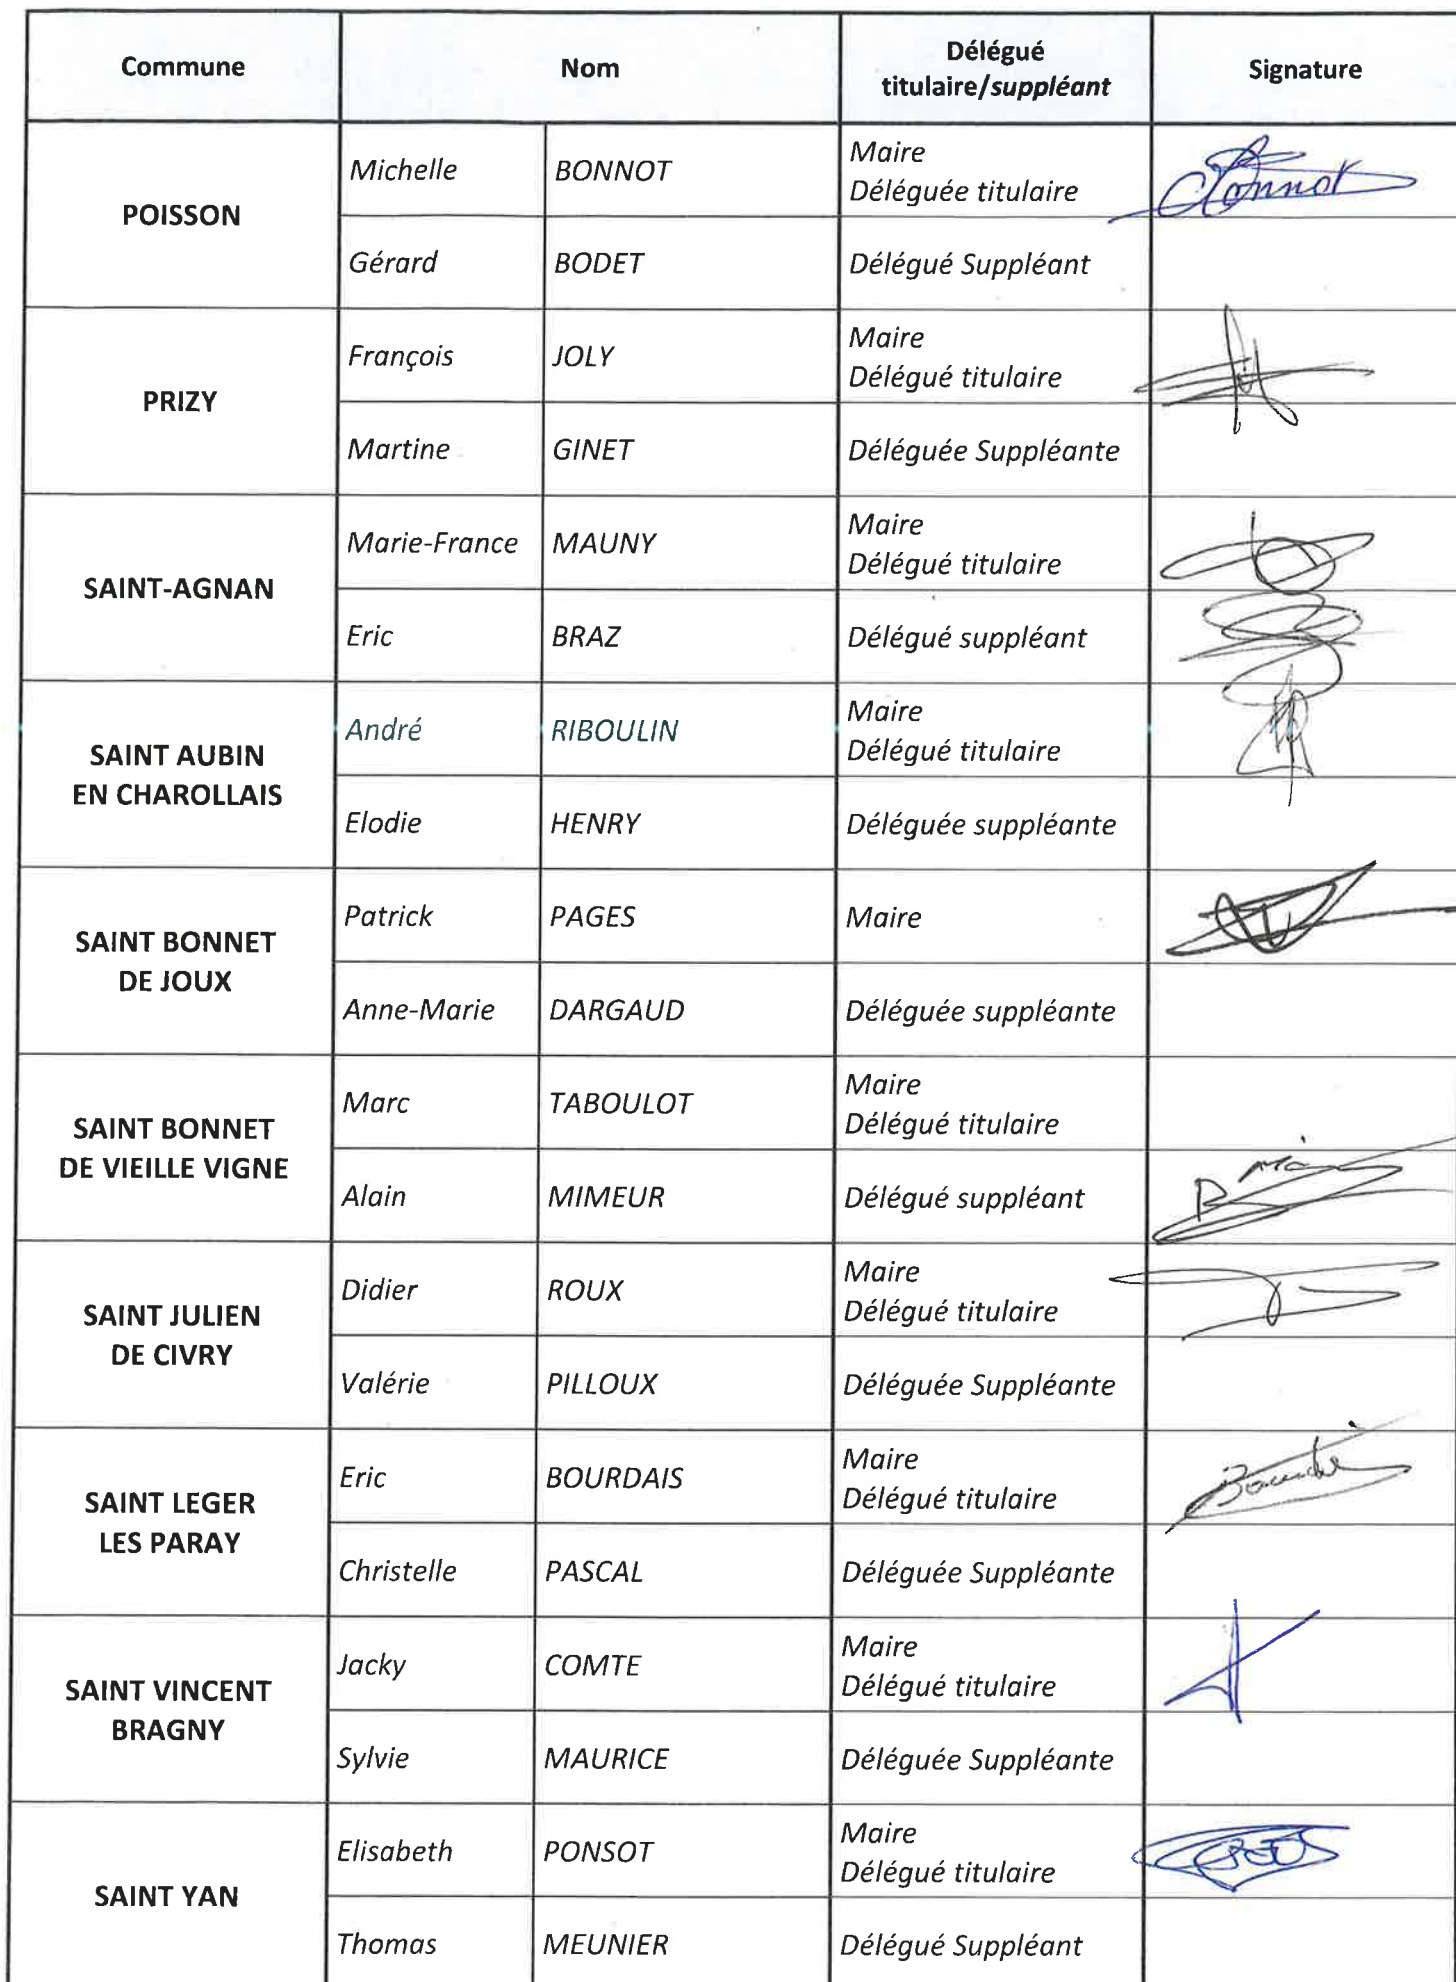 Commune Nom Délégué
titulaire/suppléant Signature
POISSON
Michelle BONNOT Maire
Déléguée titulaire Bonnot
Gérard BODET Délégué Suppléant
PRIZY
François JOLY Maire
Délégué titulaire
Martine GINET Déléguée Suppléante
SAINT-AGNAN
Marie-France MAUNY Maire
Délégué titulaire
Eric BRAZ Délégué suppléant
SAINT AUBIN
EN CHAROLLAIS
André RIBOULIN Maire
Délégué titulaire
Elodie HENRY Déléguée suppléante
SAINT BONNET
DE JOUX
Patrick PAGES Maire
Anne-Marie DARGAUD Déléguée suppléante
SAINT BONNET
DE VIEILLE VIGNE
Marc TABOULOT Maire
Délégué titulaire
Alain MIMEUR Délégué suppléant
SAINT JULIEN
DE CIVRY
Didier ROUX Maire
Délégué titulaire
Valérie PILLOUX Déléguée Suppléante
SAINT LEGER
LES PARAY
Eric BOURDAIS Maire
Délégué titulaire
Christelle PASCAL Déléguée Suppléante
SAINT VINCENT
BRAGNY
Jacky COMTE Maire
Délégué titulaire
Sylvie MAURICE Déléguée Suppléante
SAINT YAN
Elisabeth PONSOT Maire
Délégué titulaire
Thomas MEUNIER Délégué Suppléant